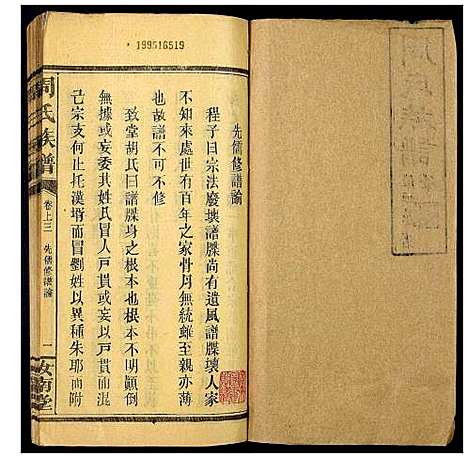 199516519
先儒修譜論
程子曰宗法廢壞譜牒尚有遺風譜牒壞人家
不知來處世有百年之家骨月無統雖至親亦薄
也故譜不可不修
致堂胡氏曰譜牒身之根本也根本不明顛倒
無據或妄委其姓氏冒人戶貫或妄而混
己宗支何止托漢壻而冒劉姓以異種朱耶而附
周氏族譜
卷上三
先儒修譜論
一
汝南堂